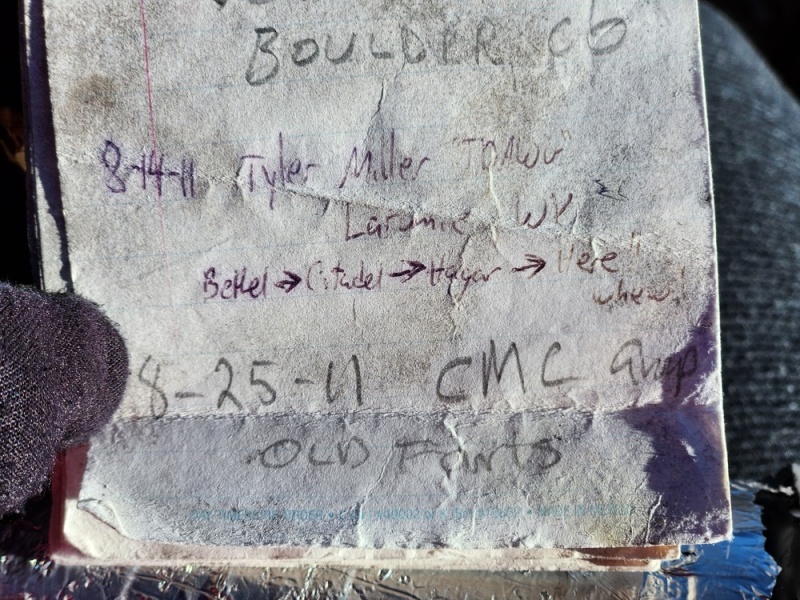 BOULDER CO
8-14-11 Tyler Miller "TDAWG"
Laramie WY
Bethel → Citadel → Hagar → Here
whew!
8-25-11 CMC Group
OLD Farts